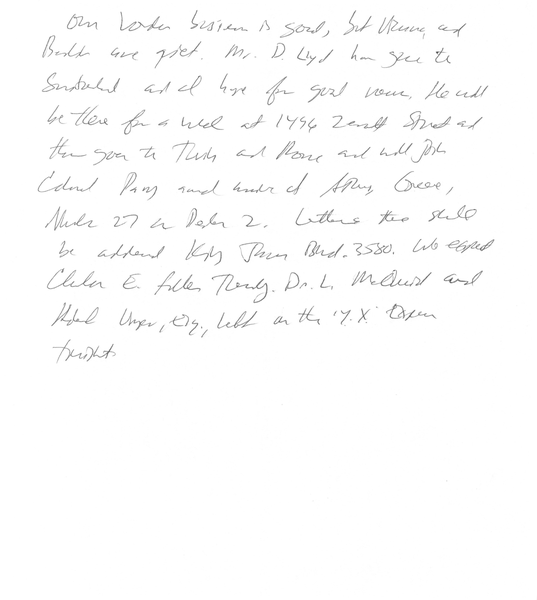 Our London business is good, but Vienna and
Berlin are quiet. Mr. D. Lloyd has gone to
Switzerland and I hope for good news. He will
be there for a week at 1496 Zermott Street and
then goes to Turin and Rome and will join
Colonel Parry and arrive at Athens, Greece,
Nov. 27 or Dec. 2. Letters there should
be addressed King James Blvd. 3580. We expect
Charles E. Fuller Tuesday. Dr. L. McQuaid and
Robert Unger, Esq., left on the 'Y.X.' Express
tonight.